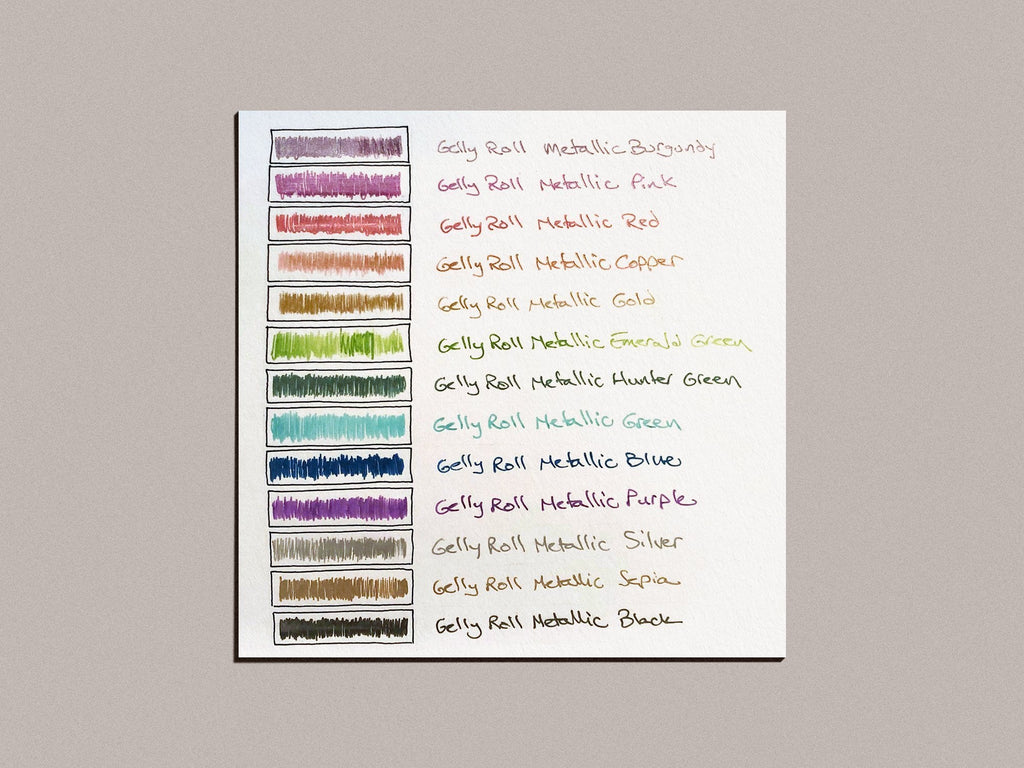 Gelly Roll Metallic Burgundy
Gelly Roll Metallic Pink
Gelly Roll Metallic Red
Gelly Roll Metallic Copper
Gelly Roll Metallic Gold
Gelly Roll Metallic Emerald Green
Gelly Roll Metallic Hunter Green
Gelly Roll Metallic Green
Gelly Roll Metallic Blue
Gelly Roll Metallic Purple
Gelly Roll Metallic Silver
Gelly Roll Metallic Sepia
Gelly Roll Metallic Black